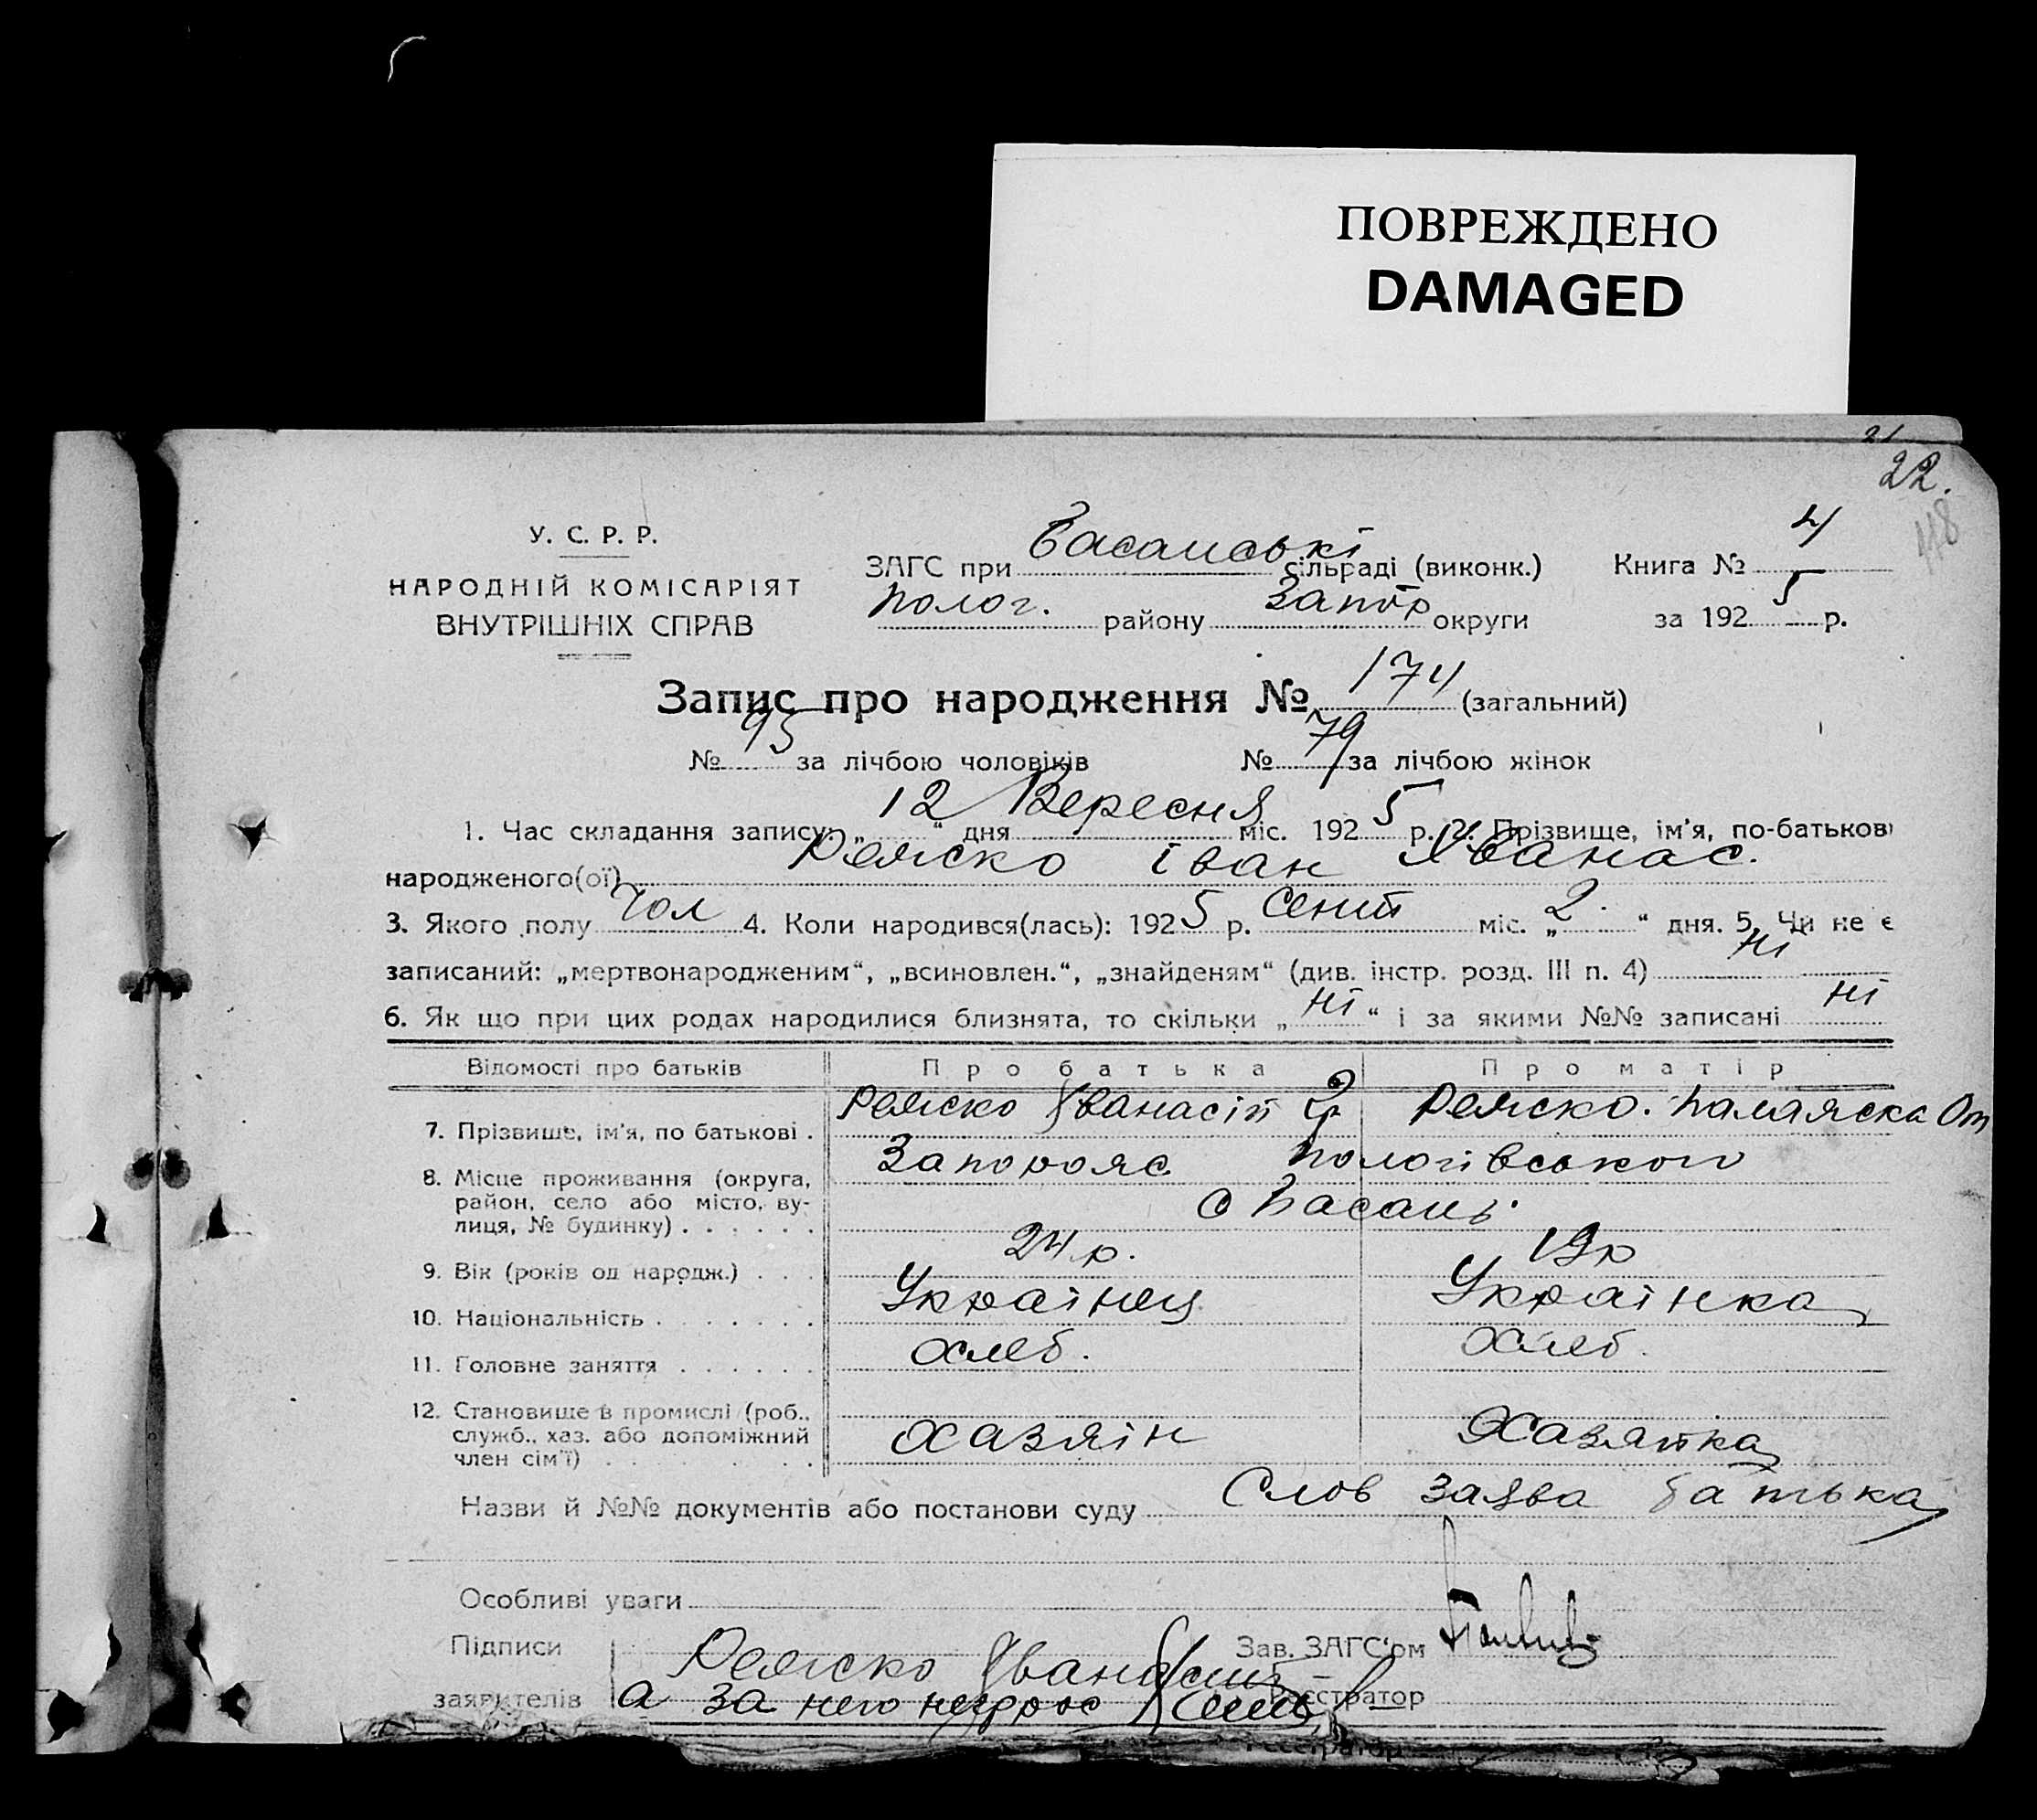 ПОВРЕЖДЕНО
DAMAGED
21
22.
118
У. С. Р. Р.
НАРОДНІЙ КОМІСАРІЯТ
ВНУТРІШНІХ СПРАВ
ЗАГС при Басанські сільраді (виконк.) Книга № 4
Полог. району Запор округи за 1925 р.
Запис про народження № 174 (загальний)
№ 95 за лічбою чоловіків № 79 за лічбою жінок
1. Час складання запису: „12“ дня Вересня міс. 1925 р. 2. Прізвище, ім'я, по-батькові
народженого(ої) Іван
3. Якого полу Чол 4. Коли народився(лась): 1925 р. Сент міс. „2“ дня. 5. Чи не є
записаний: „мертвонародженим“, „всиновлен.“, „знайденям“ (див. інстр. розд. III п. 4) Ні
6. Як що при цих родах народилися близнята, то скільки „Ні“ і за якими №№ записані Ні
Відомості про батьків Про батька Про матір
7. Прізвише, ім'я, по батькові .
8. Місце проживання (округа, Запорож. Пологівського
район, село або місто, ву- с Басань.
лиця, № будинку) . . . . . .
9. Вік (років од народж.) . . . 24 р. 19 р
10. Національність . . . . . . . Українец Українка
11. Головне заняття . . . . . . Хлеб. Хлеб.
12. Становище в промислі (роб.,
служб., хаз. або допоміжний Хазяін Хазяйка
член сім'ї) . . . . . . . .
Назви й №№ документів або постанови суду Слов заява батька
Особливі уваги
Підписи Зав. ЗАГС'ом
заявителів а за него Реєстратор
Реєстратор